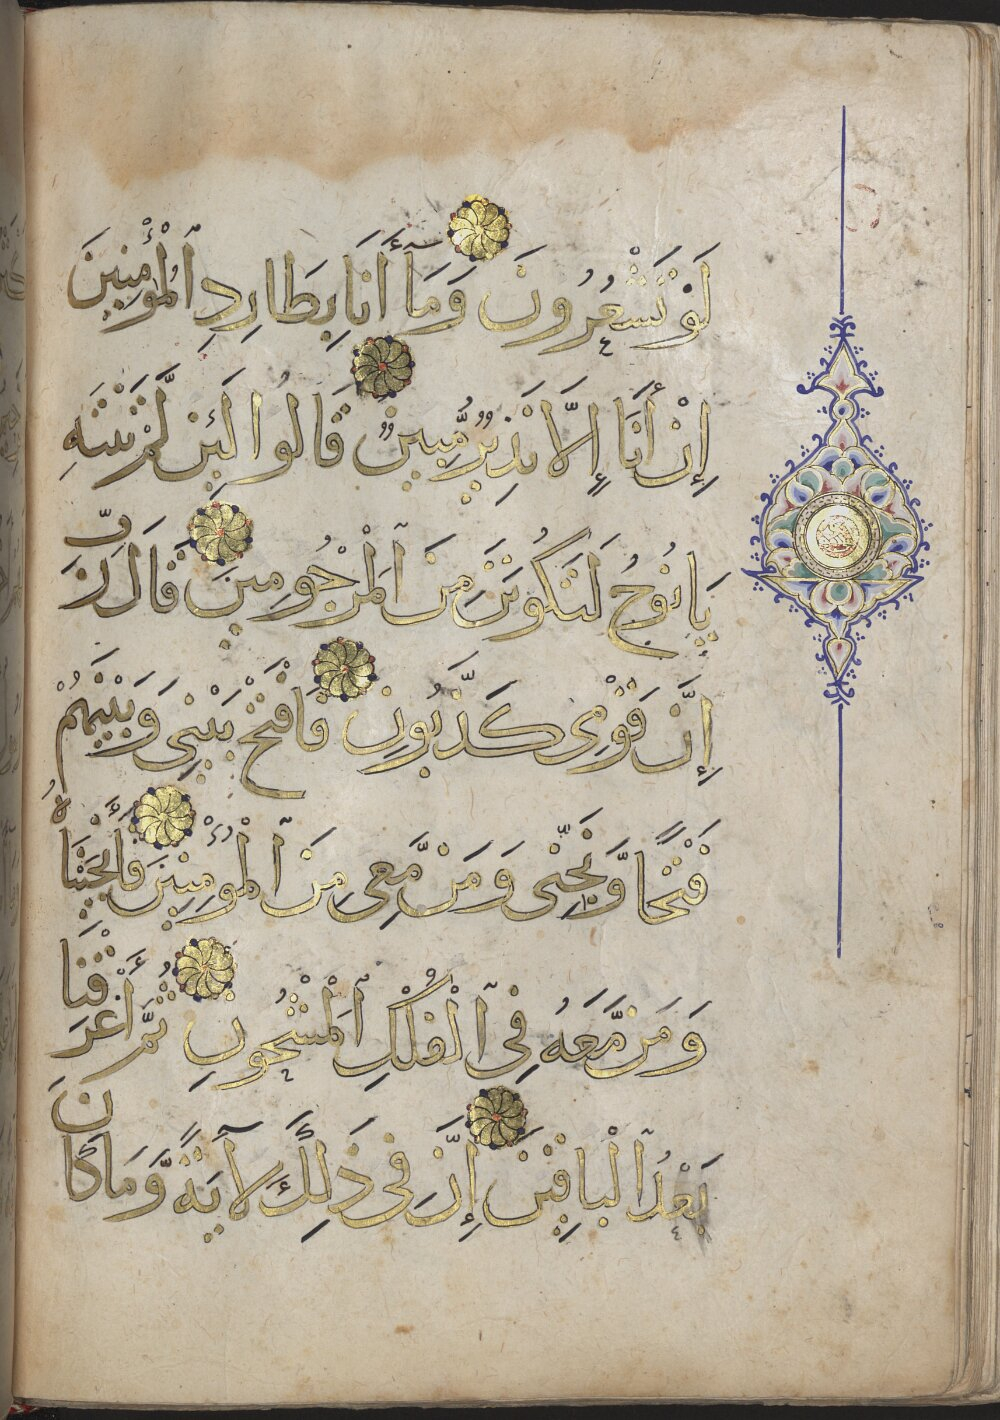 لَوْ تَشْعُرُونَ وَمَآ أَنَا بِطَارِدِ ٱلْمُؤْمِنِينَ
إِنْ أَنَا إِلَّا نَذِيرٌ مُّبِينٌ قَالُوا لَئِن لَّمْ تَنتَهِ
يَا نُوحُ لَتَكُونَنَّ مِنَ ٱلْمَرْجُومِينَ قَالَ رَبِّ
إِنَّ قَوْمِى كَذَّبُونِ فَافْتَحْ بَيْنِى وَبَيْنَهُمْ
فَتْحًا وَّنَجِّنِى وَمَن مَّعِىَ مِنَ ٱلْمُؤْمِنِينَ فَأَنجَيْنَاهُ
وَمَن مَّعَهُ فِى ٱلْفُلْكِ ٱلْمَشْحُونِ ثُمَّ أَغْرَقْنَا
بَعْدُ ٱلْبَاقِينَ إِنَّ فِى ذَلِكَ لَآيَةً وَّمَا كَانَ